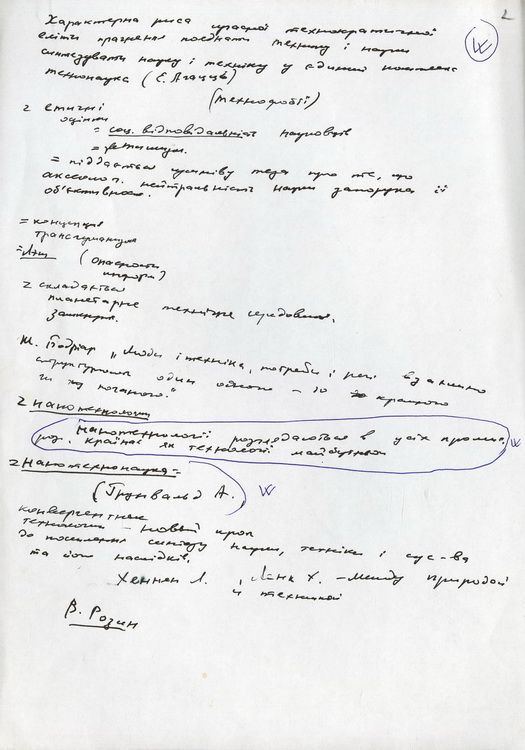 2
W
Характерна риса сучасної технократичної
еліти прагнення поєднати техніку і науки
синтезувати науку і техніку у єдиний комплекс
технонаука (Е. Агацці)
(технофобії)
2 етичні
оцінки
= соц. відповідальність науковців
= фетишизм.
= піддається сумніву теза про те, що
аксеолог. нейтральність науки запорука її
об'єктивності.
= концепція
трансгуманізм
= Лем (опасность
информ)
2 складається
планетарне технічне середовище,
замкнуте.
Ж. Бодріяр „Люди і техніка, потреби і речі взаємно
структурують один одного – до кращого
чи до поганого."
2 нанотехнологии
нанотехнології розглядаються в усіх промис.
роз. країнах як технології майбутнього
W
2 Нанотехнонаука =
(Грунвальд А.) W
конвергентные
технологии – новый крок
до посилення синтезу науки, техніки і сус-ва
та їхніх наслідків.
Хеннен Л., Линк Х. – между природой
и техникой
В. Розин